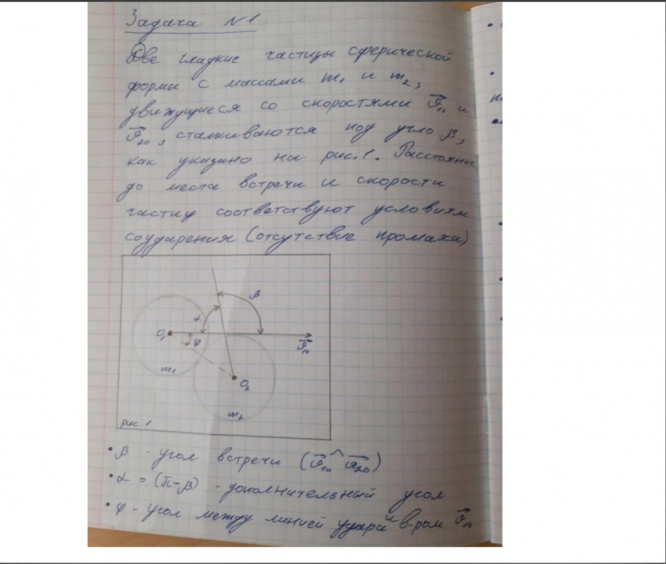 Задача №1
Две гладкие частицы сферической
форми с массами m₁ и m₂,
движущиеся со скоростями v⃗₁₀ и
v⃗₂₀, сталкиваются под угло β,
как указано на рис.1. Расстояние
до места встречи и скорости
частиц соответствуют условиям
соударения (отсутствие промаха)
β
α
O₁
φ
v⃗₁₀
m₁
O₂
m₂
рис. 1
• β - угол встречи (v⃗₁₀^v⃗₂₀)
• α = (π-β) - дополнительный угол
• φ - угол между линией удара и в-ром v⃗₁₀